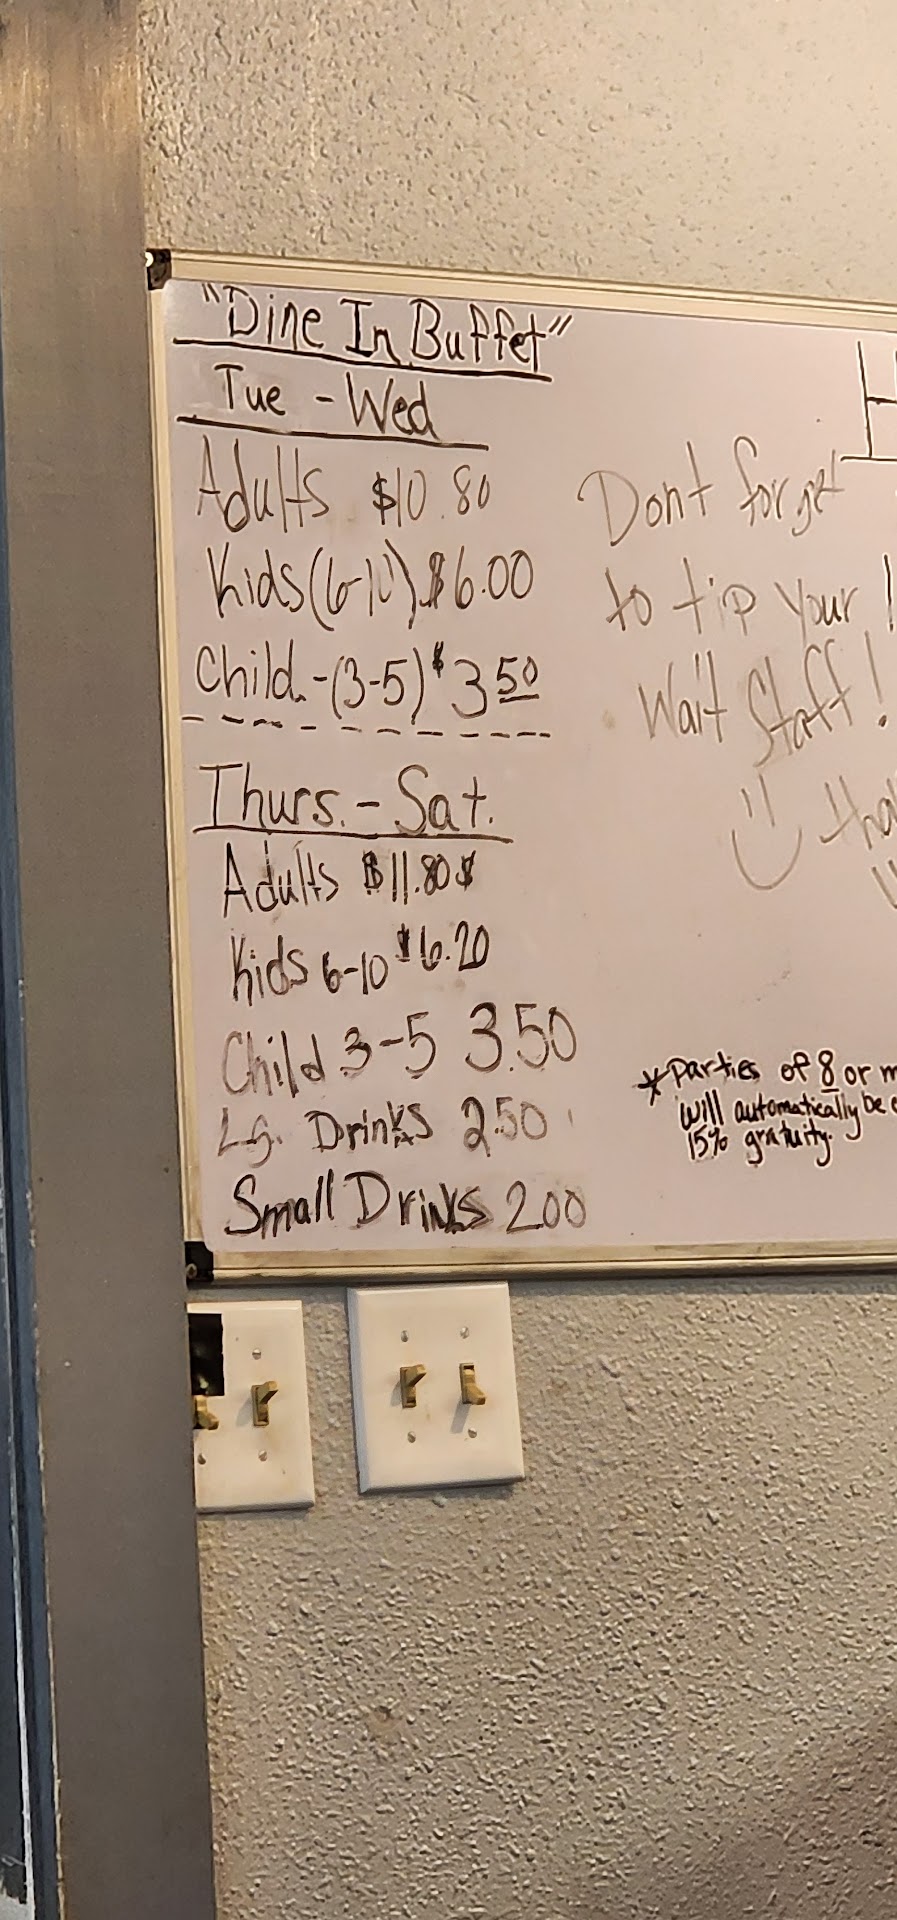 "Dine In Buffet"
Tue - Wed
Adults $10.80
Kids (6-10) $6.00
Child - (3-5) $3.50
Thurs. - Sat.
Adults $11.80
Kids 6-10 $6.20
Child 3-5 3.50
Lg. Drinks 2.50
Small Drinks 2.00
Dont forget
to tip your
Wait Staff!
*Parties of 8 or
will automatically be
15% gratuity.